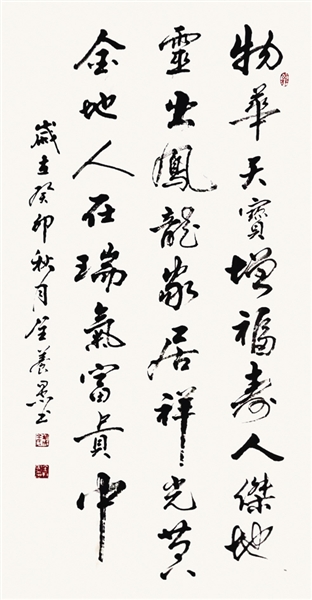 物華天寶增福壽人傑地
靈出鳳龍家居祥光黃
金地人在瑞氣富貴中
歲在癸卯秋月善书